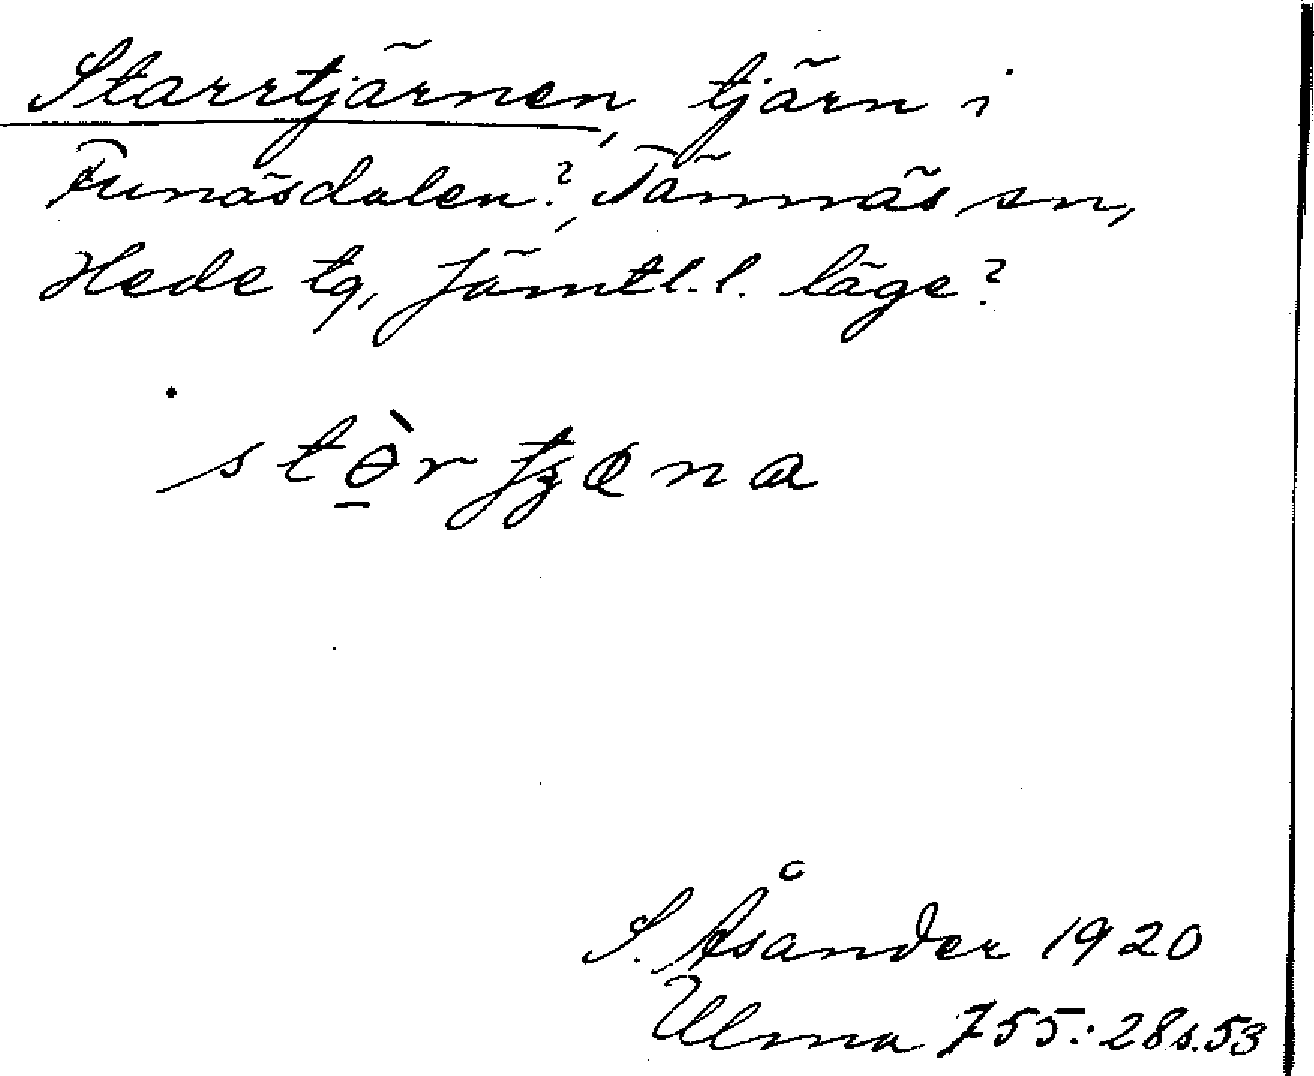 Starrtjärnen, tjärn i
Funäsdalen?, Tännäs sn,
Hede tg, Jämtl.l. läge?
S. Åsander 1920
Ulma 755:28 s.53